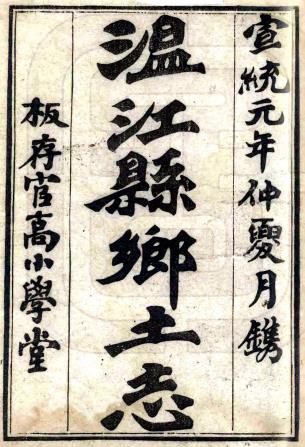 宣統元年仲夏月鐫
温江縣鄉土志
板存官高小學堂